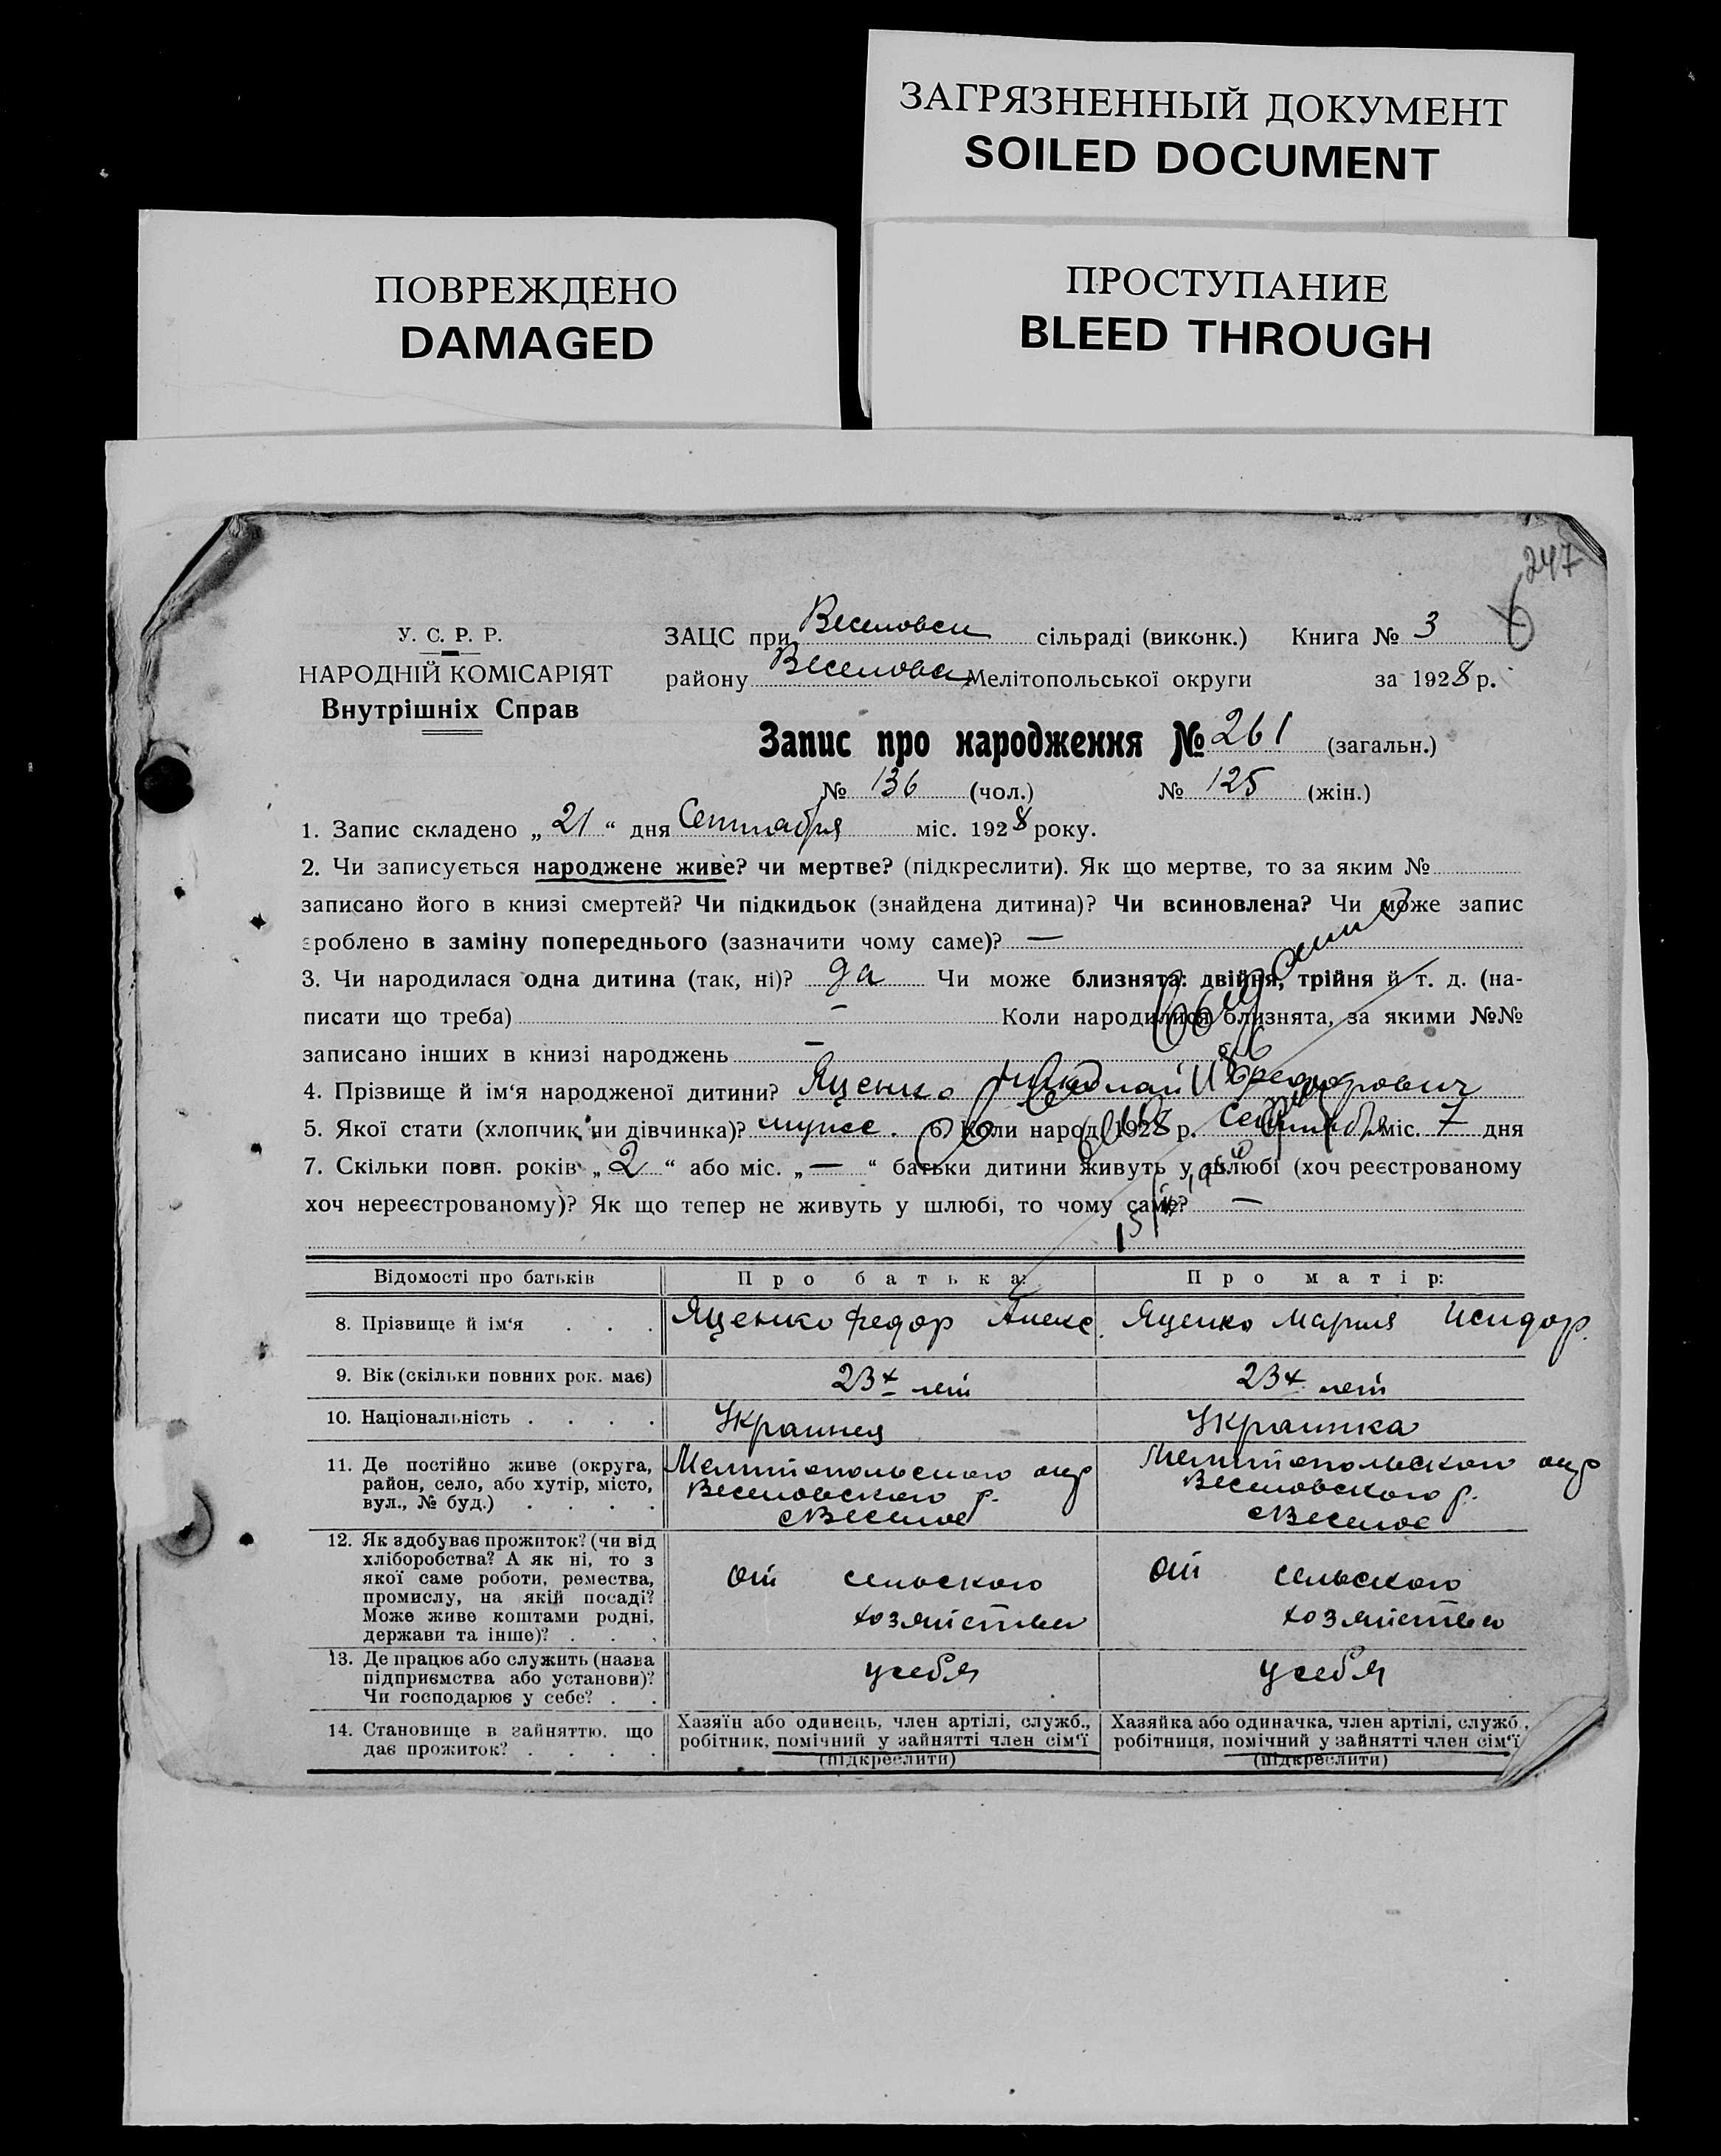 ЗАГРЯЗНЕННЫЙ ДОКУМЕНТ
SOILED DOCUMENT
ПОВРЕЖДЕНО
DAMAGED
ПРОСТУПАНИЕ
BLEED THROUGH
247
У. С. Р. Р.
НАРОДНІЙ КОМІСАРІЯТ
Внутрішніх Справ
ЗАЦС при Веселовск сільраді (виконк.) Книга № 3
району Веселовск Мелітопольської округи за 1928 р.
Запис про народження № 261 (загальн.)
№ 136 (чол.) № 125 (жін.)
1. Запис складено „ 21 “ дня Сентября міс. 1928 року.
2. Чи записується народжене живе? чи мертве? (підкреслити). Як що мертве, то за яким №
записано його в книзі смертей? Чи підкидьок (знайдена дитина)? Чи всиновлена? Чи може запис
зроблено в заміну попереднього (зазначити чому саме)? —
3. Чи народилася одна дитина (так, ні)? да Чи може близнята: двійня, трійня й т. д. (на-
писати що треба) — Коли народилися близнята, за якими №№
записано інших в книзі народжень —
4. Прізвище й ім‘я народженої дитини? Яценко Николай Федорович
5. Якої стати (хлопчик чи дівчинка)? мужс. 6. Коли народ. 1928 р. Сентября міс. 7 дня
7. Скільки повн. років „ 2 “ або міс. „ — “ батьки дитини живуть у шлюбі (хоч реєстрованому
хоч нереєстрованому)? Як що тепер не живуть у шлюбі, то чому саме? —
Відомості про батьків Про батька: Про матір:
8. Прізвище й ім‘я . . . Яценко Федор Алекс. Яценко Мария Исидор.
9. Вік (скільки повних рок. має) 23х лет 23х лет
10. Національність . . . . Украинец Украинка
11. Де постійно живе (округа, район, село, або хутір, місто, вул., № буд.) . . . .
Мелитопольского окр Веселовского р. с Веселое
Мелитопольского окр Веселовского р. с Веселое
12. Як здобуває прожиток? (чи від
хліборобства? А як ні, то з
якої саме роботи, ремества,
промислу, на якій посаді?
Може живе коштами родні,
держави та інше)? . . .
от сельского хозяйства
от сельского хозяйства
13. Де працює або служить (назва
підприємства або установи)?
Чи господарює у себе? . .
у себя
у себя
14. Становище в зайняттю, що
дає прожиток? . . . .
Хазяїн або одинець, член артілі, служб.,
робітник, помічний у зайнятті член сім‘ї
(підкреслити)
Хазяйка або одиначка, член артілі, служб.,
робітниця, помічний у зайнятті член сім‘ї
(підкреслити)